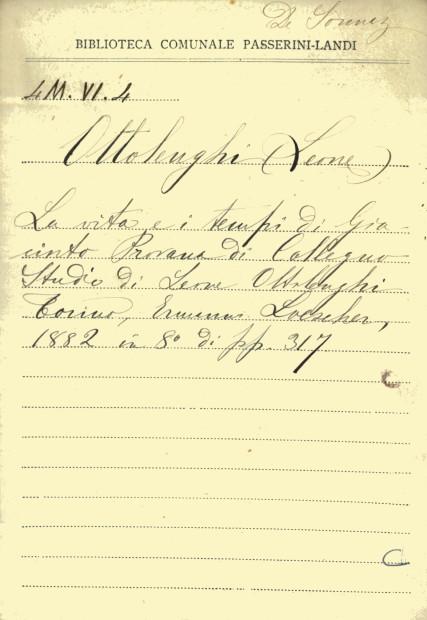 De Sonnaz
BIBLIOTECA COMUNALE PASSERINI-LANDI
4 M. VI. 4
Ottolenghi (Leone)
La vita e i tempi di Gia-
cinto Provana di Collegno
Studio di Leone Ottolenghi
Torino, Ermanno Loescher,
1882 in 8° di pp. 317
C
C